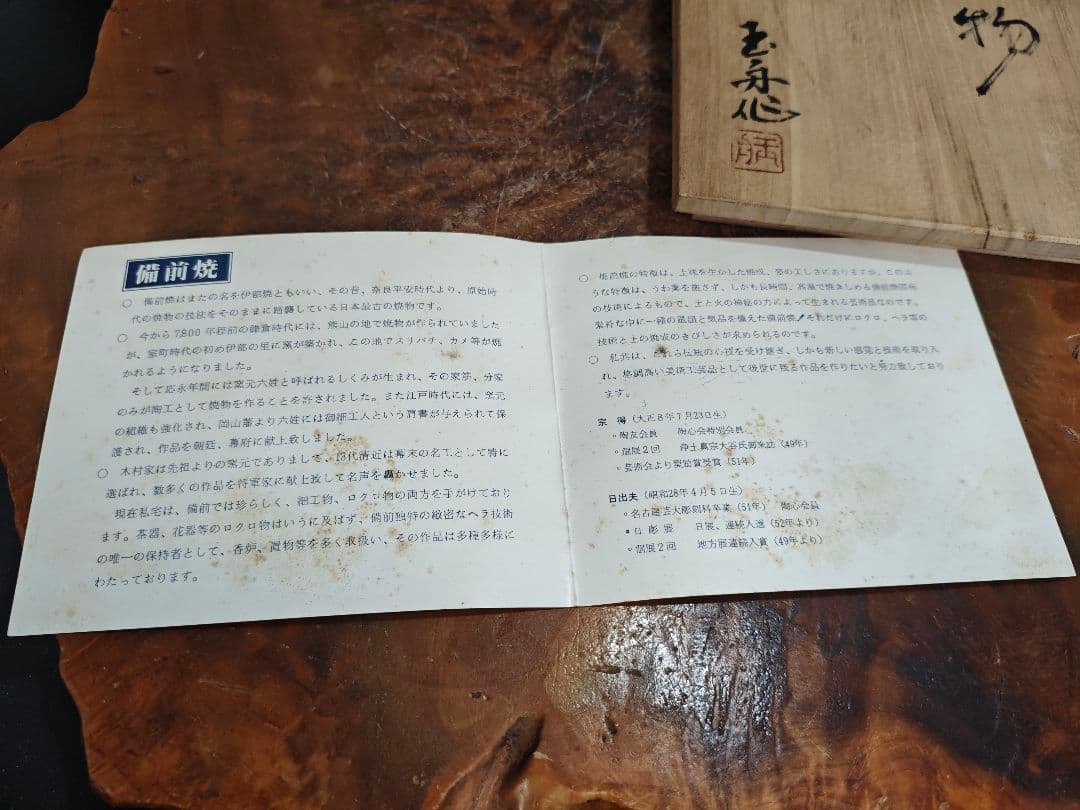 物
玉舟作
備前焼
○ 備前焼はまたの名を伊部焼ともいい、その昔、奈良平安時代より、原始時
代の焼物の技法をそのままに踏襲している日本最古の焼物です。
○ 今から7,800年程前の鎌倉時代には、熊山の地で焼物が作られていました
が、室町時代の初め伊部の里に窯が築かれ、この地でスリバチ、カメ等が焼
かれるようになりました。
そして応永年間には窯元六姓と呼ばれるしくみが生まれ、その家筋、分家
のみが陶工として焼物を作ることを許されました。また江戸時代には、窯元
の組織も強化され、岡山藩より六姓には御細工人という肩書が与えられて保
護され、作品を朝廷、幕府に献上致しました。
○ 木村家は先祖よりの窯元でありまして、13代清近は幕末の名工として特に
選ばれ、数多くの作品を将軍家に献上致して名声を轟かせました。
現在私宅は、備前では珍らしく、細工物、ロクロ物の両方を手がけており
ます。茶器、花器等のロクロ物はいうに及ばず、備前独特の緻密なヘラ技術
の唯一の保持者として、香炉、置物等を多く取扱い、その作品は多種多様に
わたっております。
○ 備前焼の特徴は、土味を生かした焼成、窯の美しさにありますが、このよ
うな特徴は、うわ薬を施さず、しかも長時間、高温で焼きしめる備前焼固有
の技術によるもので、土と火の神秘の力によって生まれる芸術品なのです。
素朴な中に一種の風韻と気品を備えた備前焼、それだけにロクロ、ヘラ等の
技術と土の吟味のきびしさが求められるのです。
○ 私共は、これら伝統の心技を受け継ぎ、しかも新しい感覚と技術を取り入
れ、格調高い美術工芸品として後世に残る作品を作りたいと努力致しており
ます。
宗得(大正8年7月23日生)
○陶友会員 陶心会特別会員
○個展2回 浄土真宗大谷氏御来訪(49年)
○芸術会より奨励賞受賞(51年)
日出夫(昭和28年4月5日生)
○名古屋芸大彫刻科卒業(51年) 陶心会員
○日彫展 日展、連続入選(52年より)
○個展2回 地方展連続入賞(49年より)